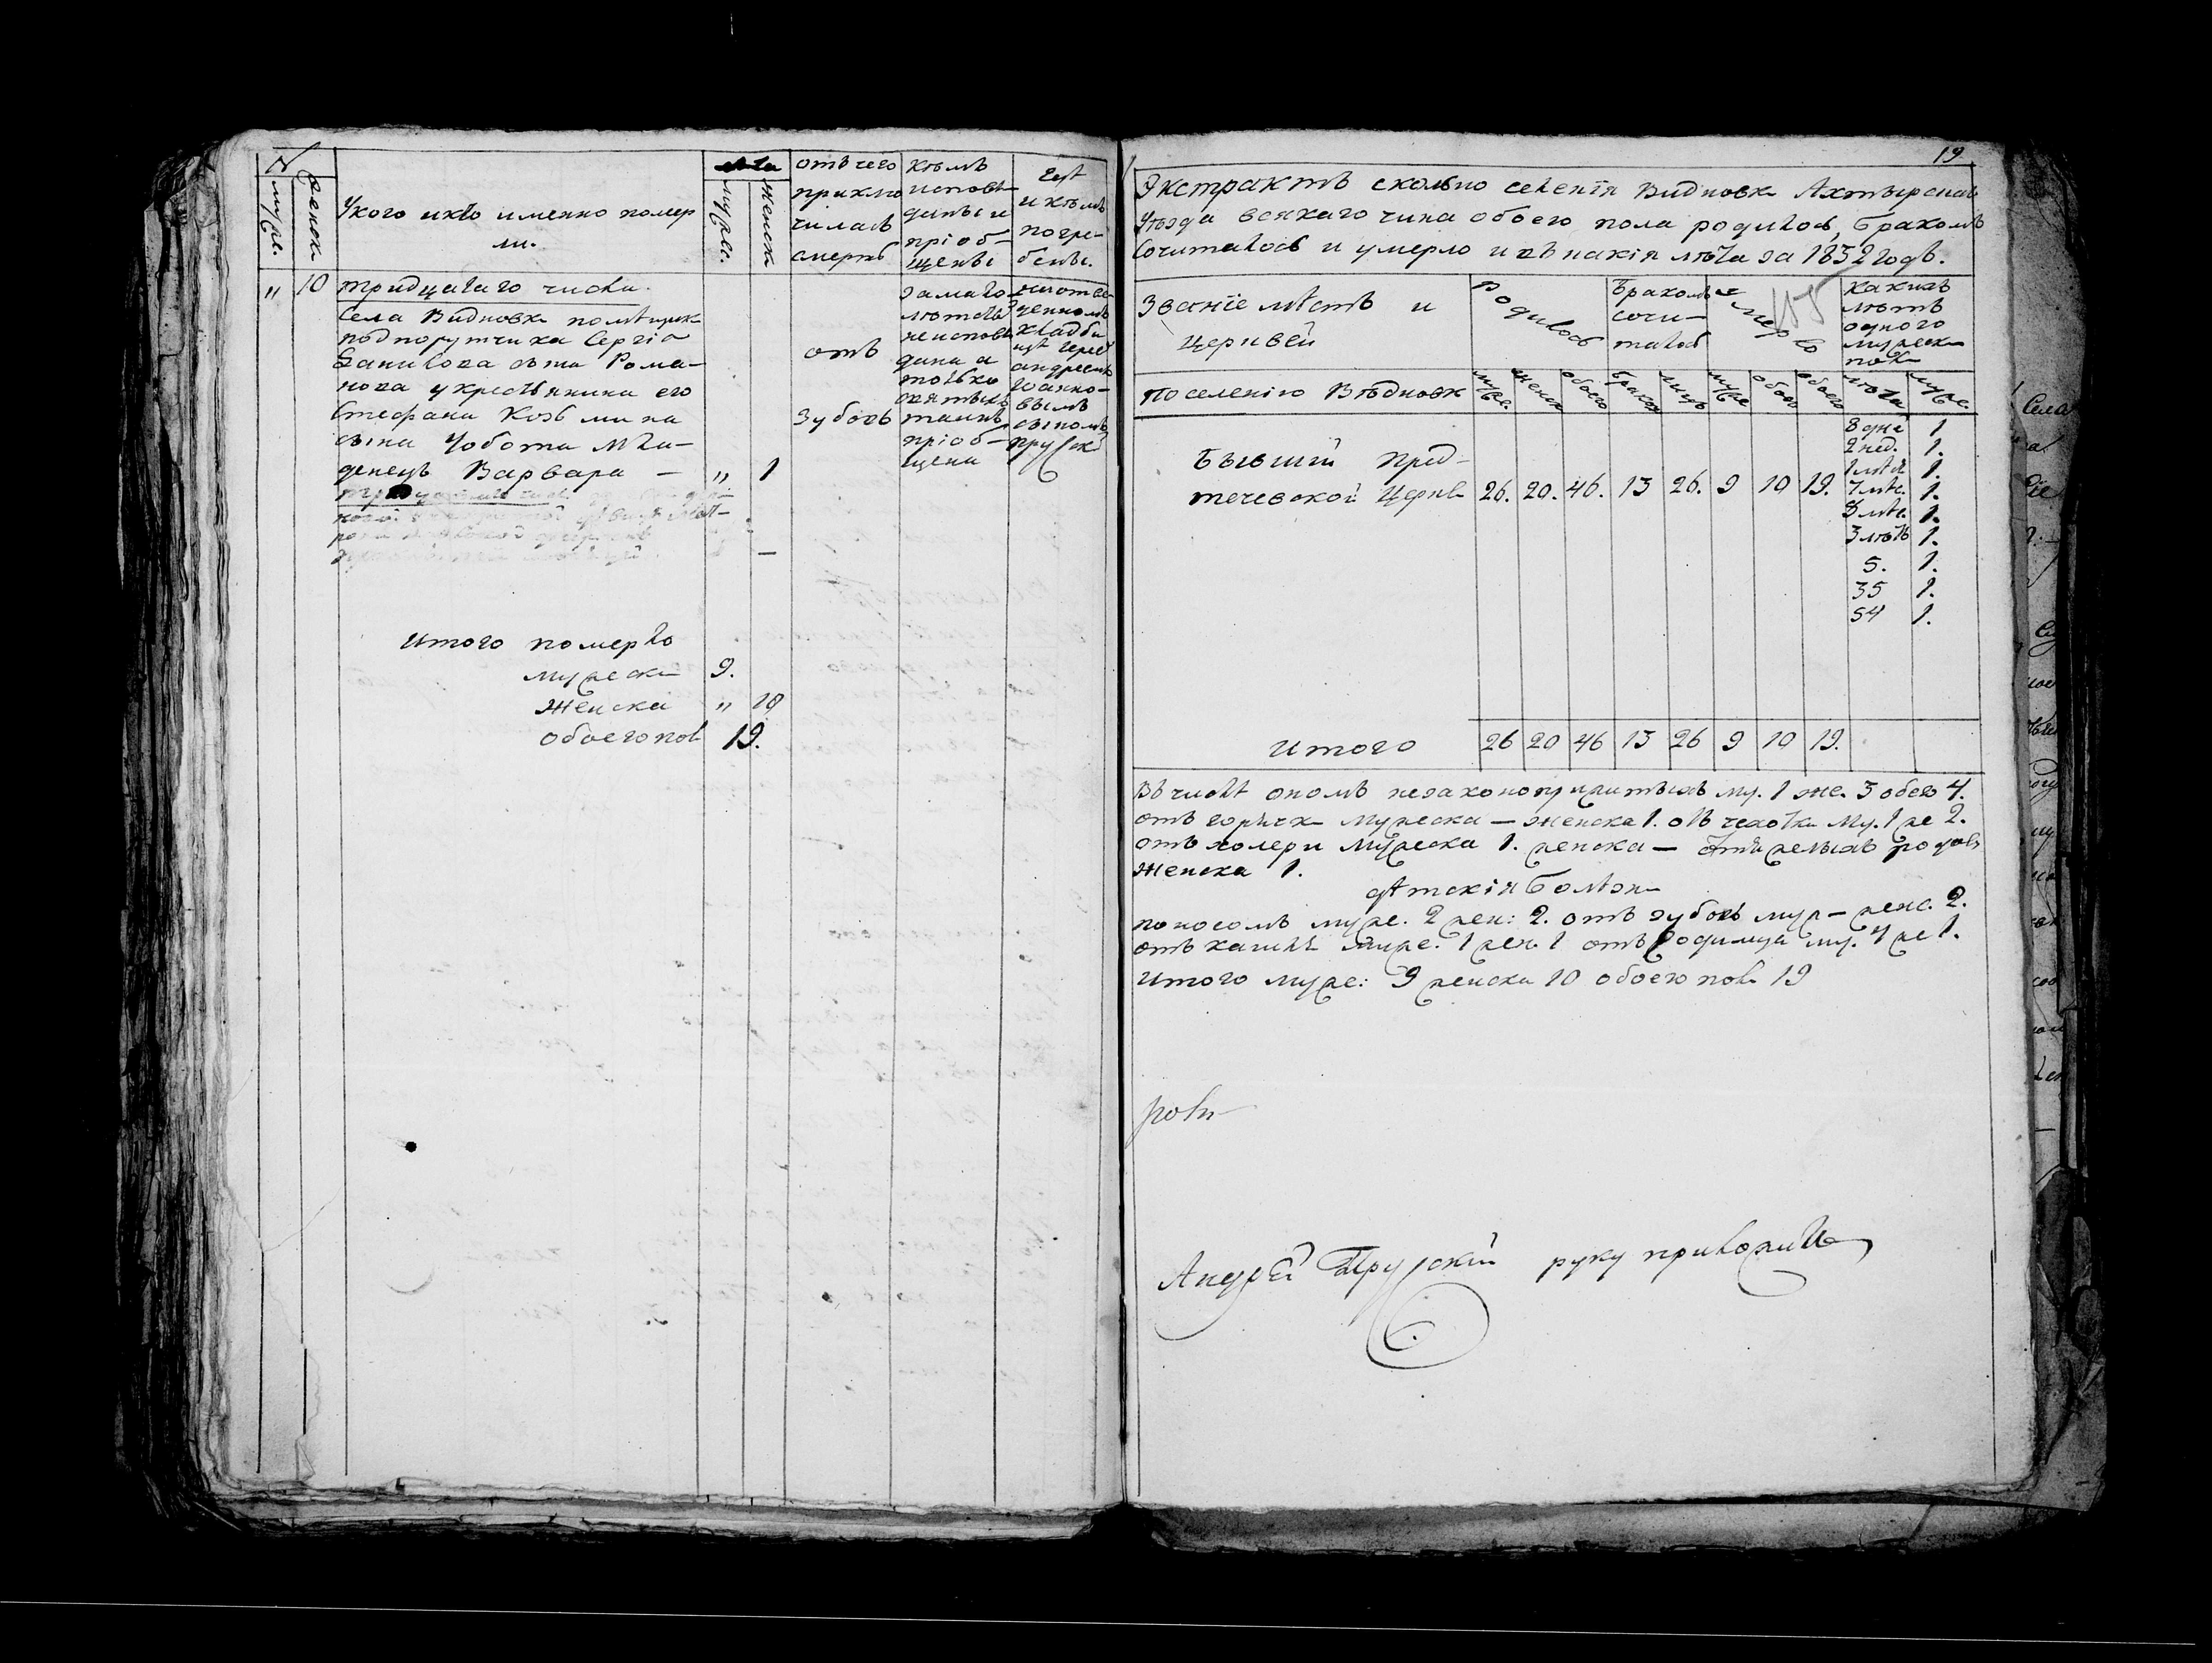 №
мужс.
женски
У кого и кто именно помер
ли.
лѣта
мужес.
женски
отъ чего
приклю
чилась
смерть
кѣмъ
исповѣ
даны и
пріоб-
щены
гдѣ
и кѣмъ
погре-
бены.
" 10 тридцатаго числа.
Села Видновки помѣщика
подпоручика Сергія
Данилова сына Рома-
нова у крестьянина его
Стефана Козьмина
сына Чобота мла-
денецъ Варвара — " 1
отъ
зубовъ
за мало-
лѣтствомъ
не исповѣ
дана а
только
святыхъ
таинъ
пріоб-
щена
на отве-
денномъ
кладби
щѣ
андреемъ
Іоанно-
вымъ
сыномъ
Прускі
Итого померло
мужеска 9.
Женска " 10
обоего пол 19.
19
Экстрактъ сколько селенія Видновки Ахтырскаго
уѣзда всякаго чина обоего пола родилось, бракомъ
сочиталось и умерло и въ какія лѣта за 1832 годъ.
Званіе мѣстъ и
церквей
Родилось
бракомъ
сочи-
талось
умерло
какихъ
лѣтъ
одного
мужеска
пола
по селенію Вѣдновки
мужс.
женск
обоего
браков
лицъ
мужс
обоего
лѣта
мужс.
бывшій пред-
течевской Церкв 26. 20. 46. 13 26. 9 10 19.
8 дне 1
2 нед. 1.
1 мѣс 1.
7 мѣс. 1.
8 мѣс. 1.
3 лѣтъ 1.
5. 1.
35 1.
54 1.
Итого 26 20 46 13 26 9 10 19.
Въ числѣ ономъ незаконоприжитыхъ му. 1 же. 3 обего 4.
отъ горячк мужеска — женска 1. отъ чехотки му. 1 же 2.
отъ холери мужеска 1. женска — отъ тяжелыхъ родовъ
женска 1.
дѣтскія болѣзн
поносомъ муже. 2 жен: 2. отъ зубовъ муж — женс. 2.
отъ кашлѣ муже. 1 жен. 1 отъ родимца му. 4 же 1.
Итого муже: 9 женска 10 обоего пол 19
Андрей Прускій руку приложилъ